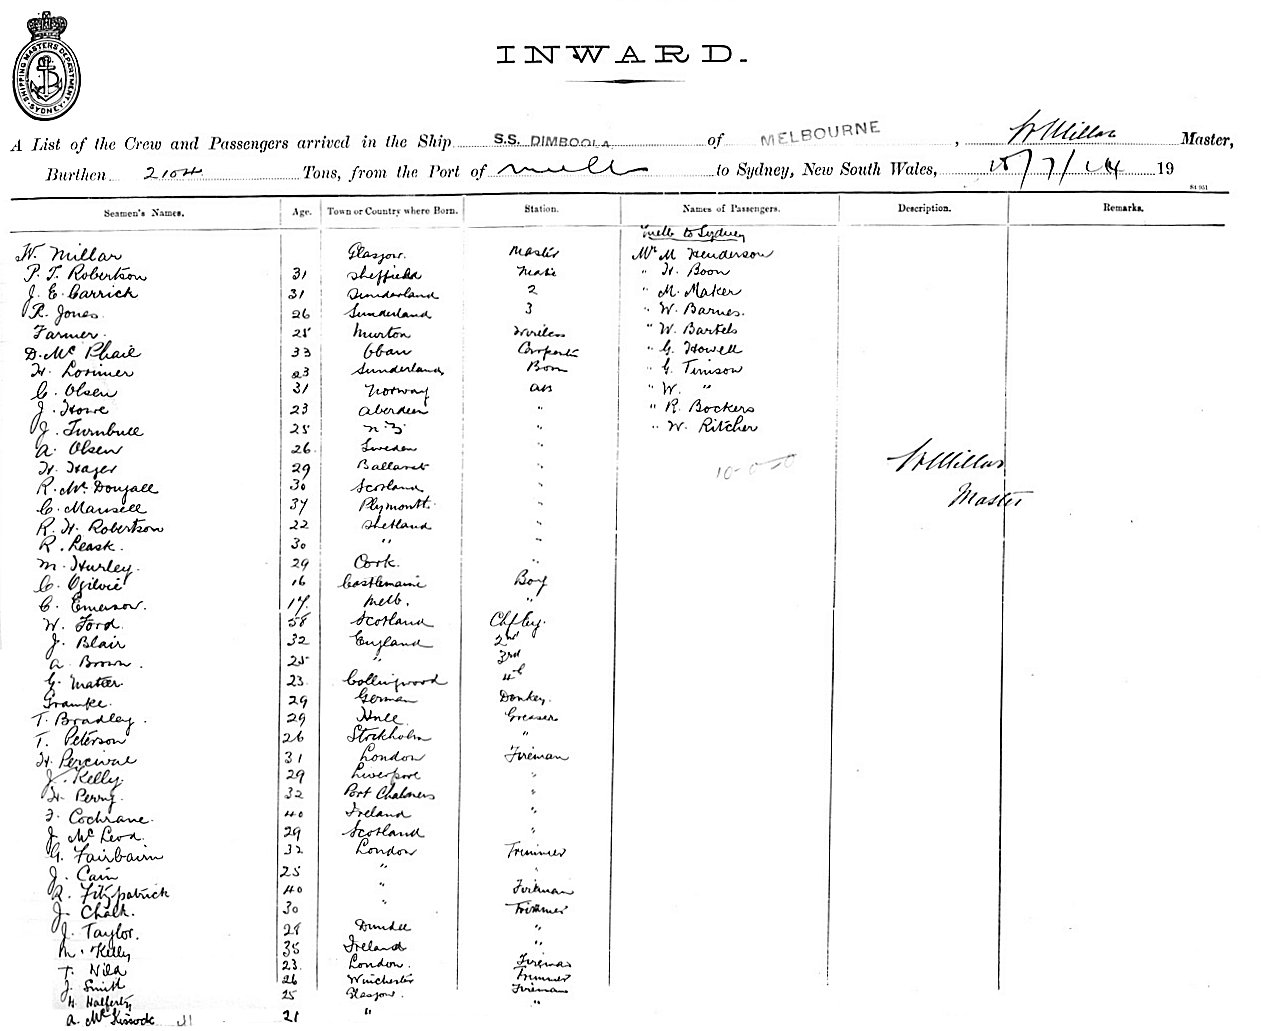 SHIPPING MASTERS DEPARTMENT SYDNEY
INWARD.
A List of the Crew and Passengers arrived in the Ship S.S. DIMBOOLA of MELBOURNE, W Millar Master,
Burthen 2104 Tons, from the Port of Melb to Sydney, New South Wales, 19
Seamen's Names. Age. Town or Country where Born. Station. Names of Passengers. Description. Remarks.
Melb to Sydney
W. Millar Glasgow. Master Mr M Henderson
P. T. Robertson 31 Sheffield Mate " H. Boon
J. E. Carrick 31 Sunderland 2 " M. Maker
R. Jones 26 Sunderland 3 " W. Barnes.
Farmer. 25 Murton Wireless " W. Bartels
D. Mc Phail 33 Oban Carpenter " G. Howell
H. Lorimer 23 Sunderland Bosn " G. Timson
C. Olsen 31 Norway AB " W. "
J. Howe 23 Aberdeen " " R. Bockers
J. Turnbull 25 N.Z " " W. Ritcher
A. Olsen 26 Sweden "
H. Hager 29 Ballarat " 10-0-0 W Millar
R. Mc Dougall 30 Scotland " Master
C. Mansell 34 Plymouth "
R. H. Robertson 22 Shetland "
R. Leask. 30 " "
M. Hurley. 29 Cork. "
C. Ogilvie 16 Castlemaine Boy
C. Emerson. 17. Melb. "
W. Ford. 58 Scotland
J. Blair 32 England 2nd
A. Brown. 25 " 3rd
G. Matter. 23 Collingwood 4th
Gramke. 29 German Donkey.
T. Bradley. 29 Hull Greaser
T. Peterson 26 Stockholm "
H. Percival 31 London Fireman
J. Kelly. 29 Liverpool "
H. Perry. 32 Port Chalmers "
F. Cochrane. 40 Ireland "
J. Mc Leod. 29 Scotland "
G. Fairbairn 32 London Trimmer
J. Cain 25 " "
R. Fitzpatrick 40 " Fireman
J. Chalk. 30 " Trimmer
J. Taylor. 28 Dundee "
M. Kelly 35 Ireland "
T. Nild 23 London. Fireman
J. Smith 26 Winchester Trimmer
H. Halferty 25 Glasgow. Fireman
A. Mc Kissock 21 " "